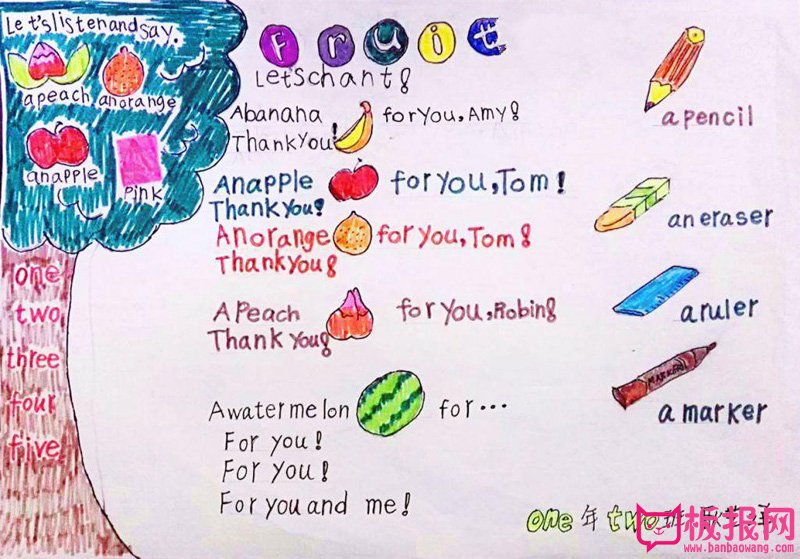 Let's listen and say.
a peach an orange
an apple pink
one
two
three
four
five
Fruit
Let's chant!
A banana for you, Amy!
Thank you!
An apple for you, Tom!
Thank you!
An orange for you, Tom!
Thank you!
A Peach for you, Robin!
Thank you!
A watermelon for...
For you!
For you!
For you and me!
a pencil
an eraser
a ruler
MARKER
a marker
one 年 two 班
板报网
www.banbaowang.com